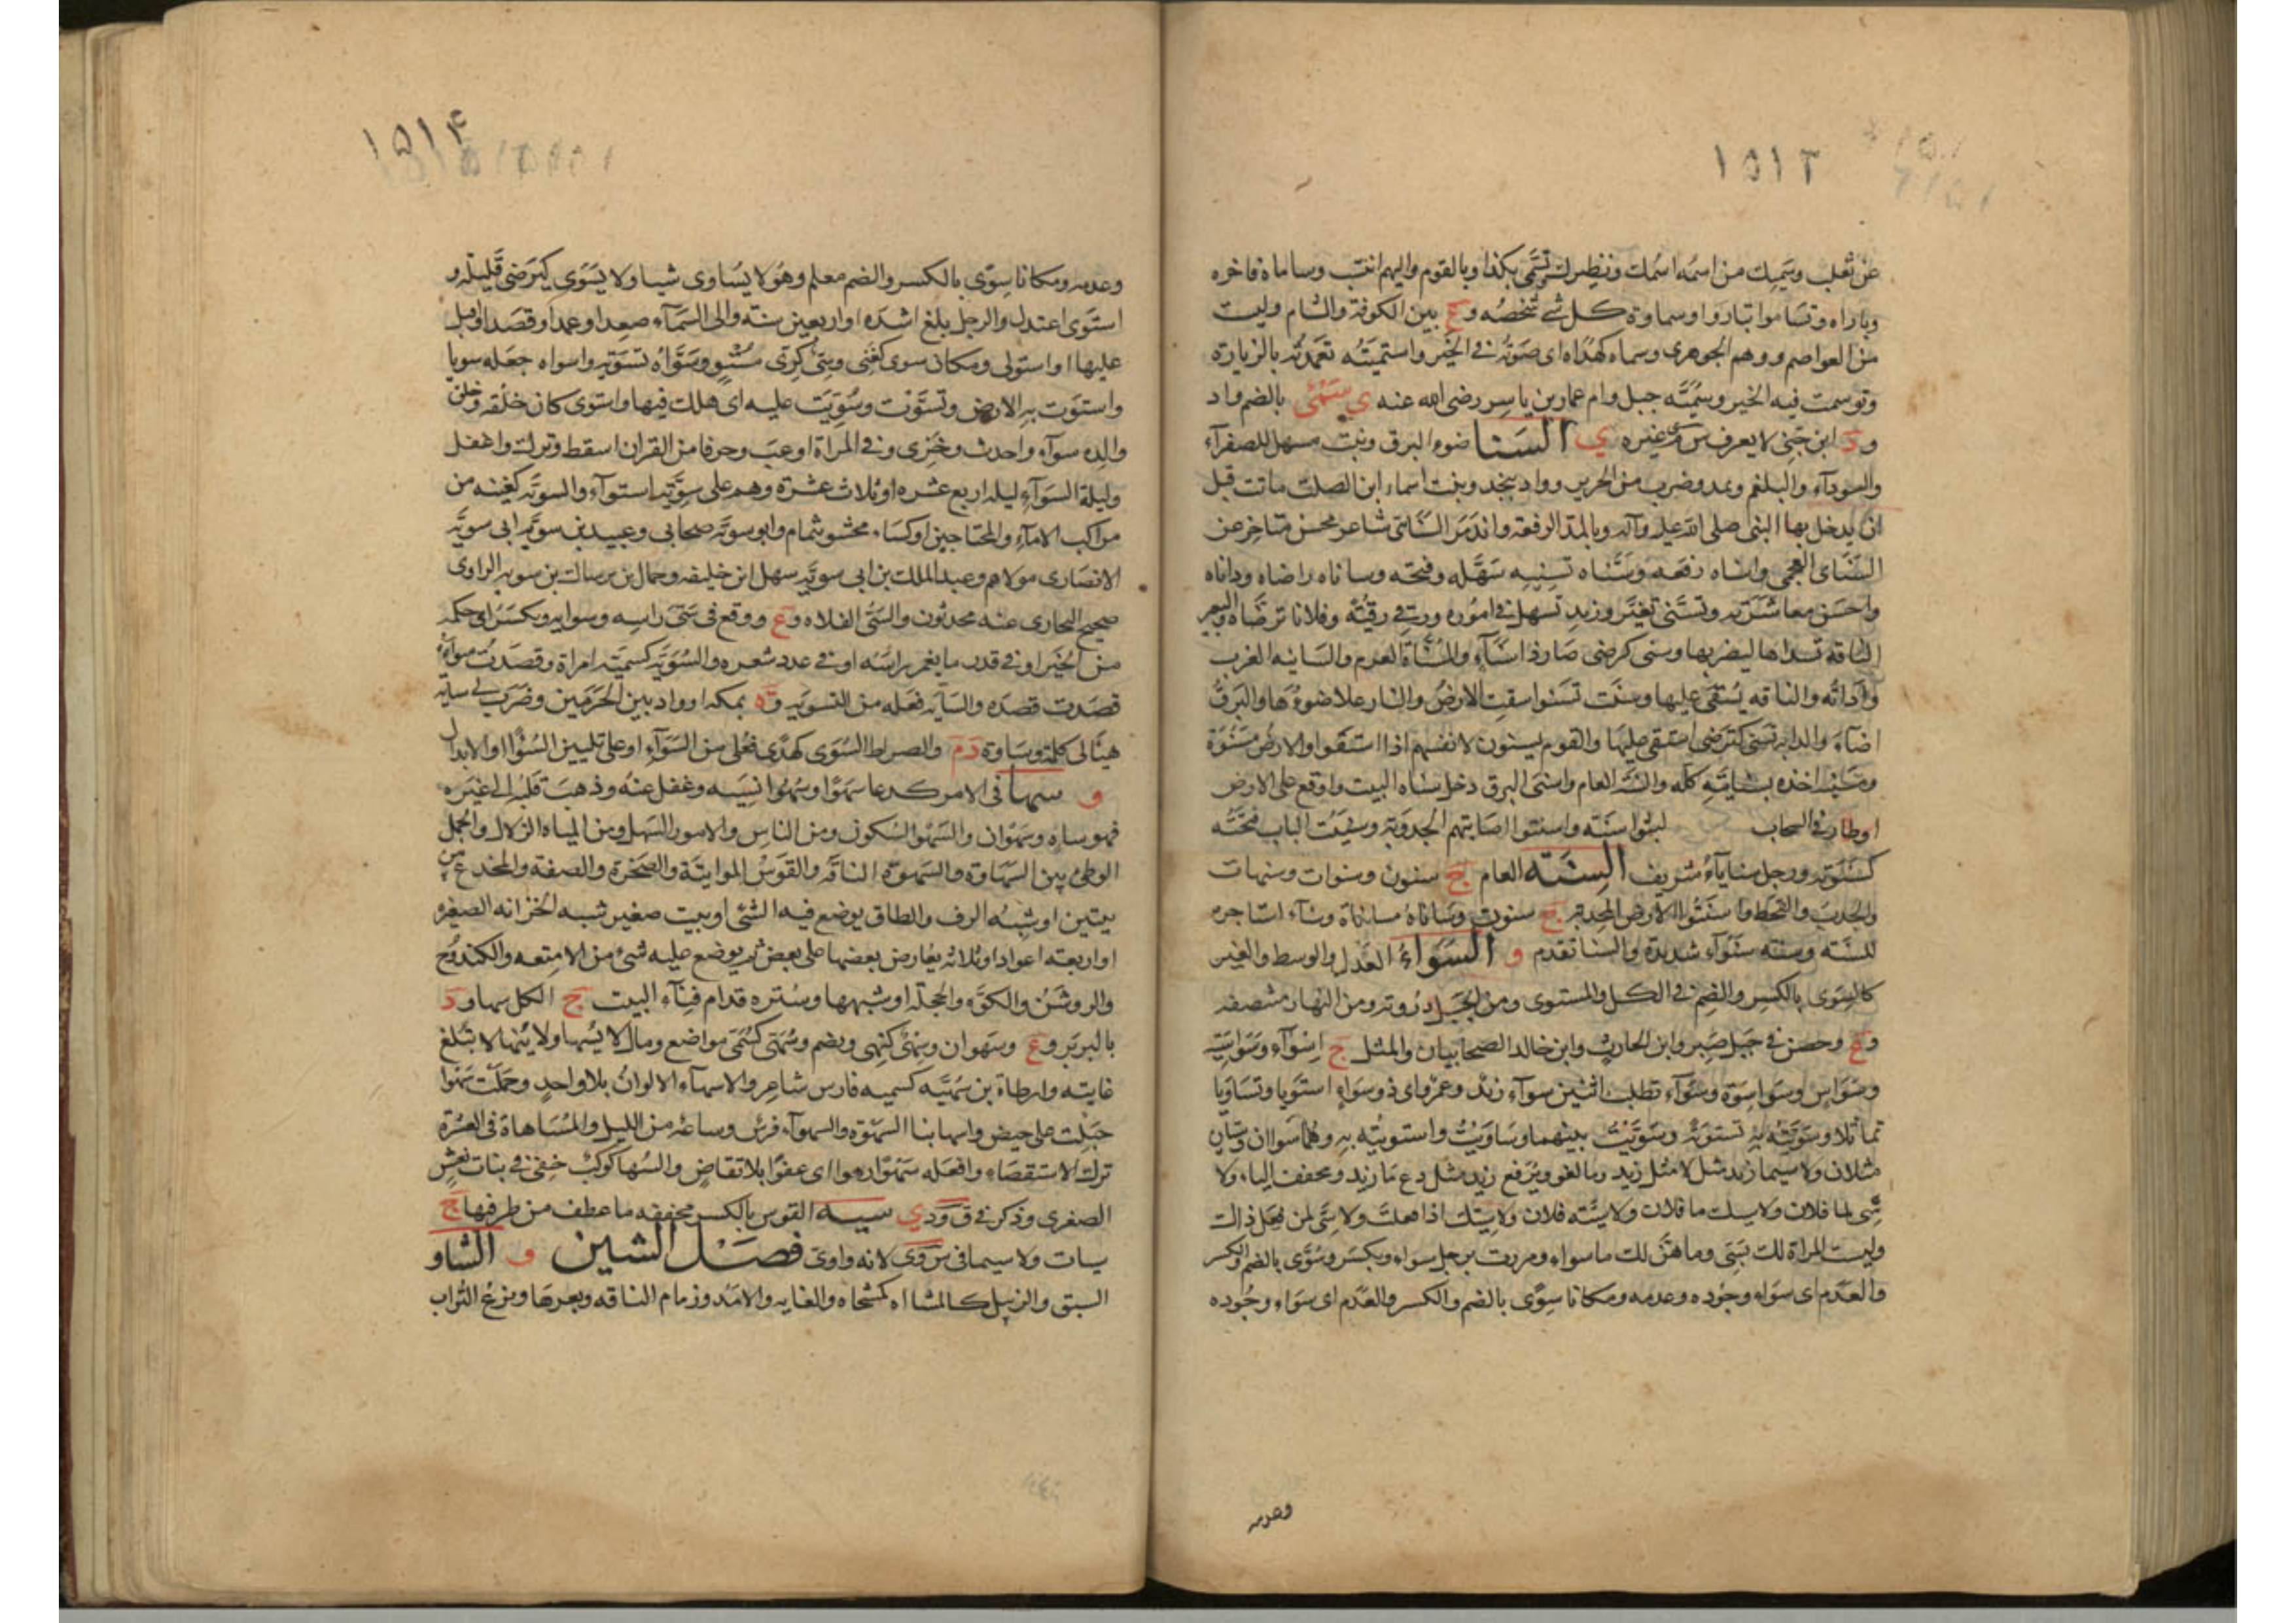 ١٥١٣
عن ثعلب وسميك من اسمه اسمك ونظيرك وتسمى بكذا وبالقوم واليهم انتسب وساماه فاخره
وباراه وتساموا تباروا وسماوة كل شئ شخصه وع بين الكوفة والشام وليست
من العواصم ووهم الجوهرى وسماه كهداه اى صوته فى الخير واستميته تعمدته بالزيارة
وتوسمت فيه الخير وسميّة جبل وام عمار بن ياسر رضى الله عنه ي سُمَىّ بالضم واد
ود ابن جنى لا يعرف س م ى غيره ي السنا ضوء البرق ونبت مسهل للصفرآء
والسودآء والبلغم ويمد وضرب من الحرير وواد بنجد وبنت اسماء ابن الصلت ماتت قبل
ان يدخل بها النبى صلى الله عليه وآله وبالمد الرفعة واندمر السنائى شاعر محسن متاخر عن
السناى العجمى واسناه رفعه وسناه تسنيه سهله وفتحه وساناه راضاه وداناه
واحسن معاشرته وتسنى تغير وزيد تسهل فى اموره ورقى رقيته وفلانا ترضاه والبعير
الناقة تسداها ليضربها وسنى كرضى صار ذا سناء والمسناة العرم والسانيه الغرب
واداته والناقه يستقى عليها وسنت تسنوا سقت الارض والنار علا ضوءها والبرق
اضاء والدابه تسنى كترضى استقى عليها والقوم يسنون لانفسهم اذا استقوا والارض مسنوة
ومسنيه اخذه بسنايته كله والسنة العام واسنى البرق دخل سناه البيت واوقع على الارض
اوطار فى السحاب لبثوا سنة واسنتوا اصابتهم الجدوبة وسنيت الباب فتحته
كسنوته ورجل سناياء شريف السنة العام ج سنون وسنوات وسنهات
والجدب والقحط واسنتوا الارض المجدبة ج سنون وساناه مساناة وسناء استاجره
للسنة وسنة سنواء شديدة والسنا تقدم و السواء العدل والوسط والغير
كالسوى بالكسر والضم فى الكل والمستوى ومن الجبل ذروته ومن النهار منتصفه
وع وحصن فى جبل صبر وابن الحارث وابن خالد الصحابيان والمثل ج اسواء وسواسية
وسواس وسواسوة وسواء تطلب اثنين سواء زيد وعمرو اى ذو سواء استويا وتساويا
تماثلا وسويته به تسوية وسويت بينهما وساويت واستويته به وهما سواان وسيان
مثلان ولا سيما زيد مثل لا مثل زيد وما لغو ويرفع زيد مثل دع ما زيد ومخفف الياء ولا
سى لما فلان ولا سيك ما فلان ولا سية فلان ولا سيك اذا فعلت ولا سى لمن فعل ذالك
وليست المراة لك بسى وما هن لك ماسواء ومررت برجل سواء ويكسر وسوى بالضم والكسر
والعدم اى سواء وجوده وعدمه ومكانا سوى بالضم والكسر والعدم اى سواء وجوده
وعدمه
١٥١٤
وعدمه ومكانا سوى بالكسر والضم معلم وهو لا يساوى شيا ولا يسوى كيرضى قليلة و
استوى اعتدل والرجل بلغ اشده او اربعين سنة والى السمآء صعد او عمد او قصد او اقبل
عليها او استولى ومكان سوى كغنى وسى كزى مستو وسواه تسوية واسواه جعله سويا
واستوت به الارض وتسوت وسويت عليه اى هلك فيها واستوى كان خلقه وخلق
والده سوآء واحدث وخزى وفى المراة اوعب وحرفا من القران اسقط وترك واغفل
وليلة السوآء ليلة اربع عشره او ثلاث عشرة وهم على سوية استوآء والسوية كغنية من
مراكب الامآء والمحتاجين او كساء محشو بثمام وابو سوية صحابى وعبيد بن سوية ابى سوية
الانصارى مولاهم وعبد الملك بن ابى سوية سهل ابن خليفه وحمال بن رسالت بن سويه الراوى
صحيح البخارى عنه محدثون والسى الفلاه وع ووقع فى سى راسه وسوايه ويكسر اى حكمه
من الخير او فى قدر ما يغمر براسه او فى عدد شعره والسوية كسمية امراة وقصدت سواه
قصدت قصده والساية فعلة من التسوية وة بمكه او واد بين الحرمين وضرب لى ساية
هيأ لى كلمة وساوة د م والصراط السوى كهدى فعلى من السوآء او على تليين السؤا والابدال
و سها فى الامر كدعا سهوا وسهوا نسيه وغفل عنه وذهب قلبه الى غيره
فهو ساه وسهوان والسهو السكون ومن الناس والامور السهل ومن المياه الزلال والجمل
الوطئ بين السهاوة والسهوة الناقة والقوس المواتية والصخرة والصفة والمخدع بين
بيتين او شبه الرف والطاق يوضع فيه الشئ او بيت صغير شبه الخزانه الصغيره
او اربعة اعواد او ثلاثه يعارض بعضها على بعض ثم يوضع عليه شئ من الامتعه والكندوج
والروشن والكوة والحجلة او شبهها وستره قدام فنآء البيت ج الكل سهاو د
بالبربر وع وسهوان وسهى كنهى ويضم وسهى كسمى مواضع ومال لا يسها ولا ينها لا تبلغ
غايته وارطاة بن سهية كسميه فارس شاعر والاسهآء الالوان بلا واحد وحملت سهوا
حبلت على حيض واسها بنا السهوة والسهوآء فرس وساعة من الليل والمساهاة فى العشرة
ترك الاستقصاء وافعله سهوا رهوا اى عفوا بلا تقاض والسها كوكب خفى فى بنات نعش
الصغرى وذكر فى ق ود ي سية القوس بالكسر مخففه ما عطف من طرفها ج
سيات ولا سيما فى س وى لانه واوى فصل الشين و الشاو
السبق والزبيل كالمشااه كمشحاه والغايه والامد وزمام الناقه وبعرها ونزع التراب